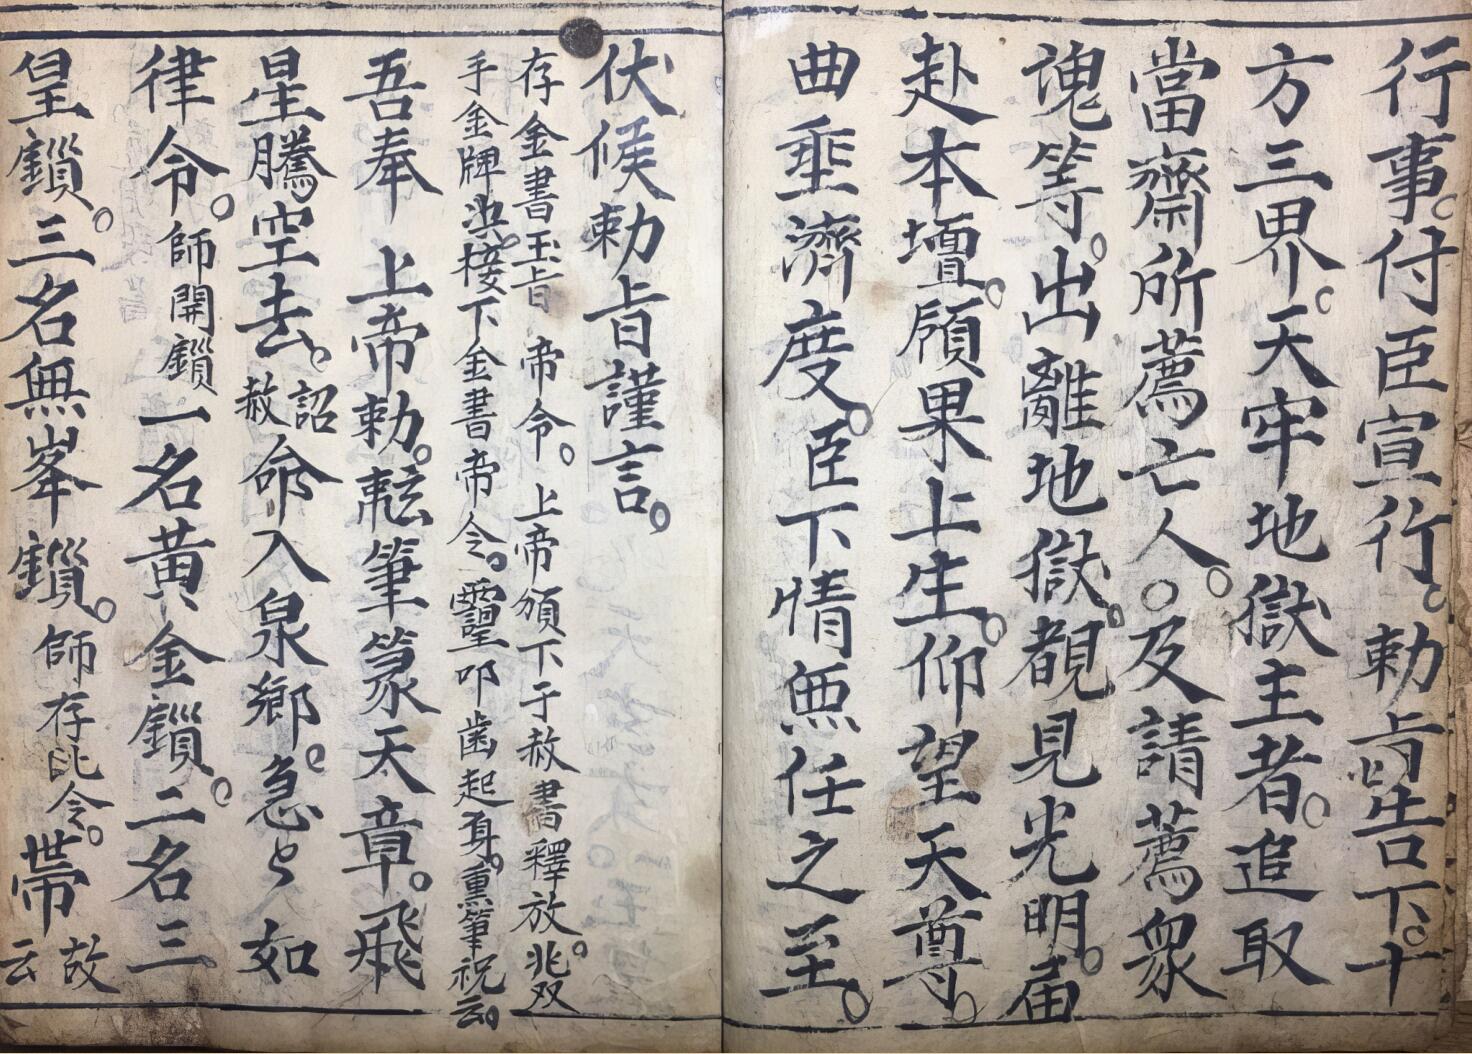 行事。付臣宣行。勅旨告下。十
方三界。天牢地獄主者。追取
當齋所薦亡人。○及請薦衆
魂等。出離地獄。覩見光明。届
赴本壇。願果上生。仰望天尊。
曲垂濟度。臣下情無任之至。
伏候勅旨謹言。
存金書玉旨 帝令。上帝頒下于赦書釋放。兆双
手金牌。接下金書帝令。望叩齒起身。熏筆祝云。
吾奉 上帝勅。筆篆天章。飛
星騰空去。詔赦命入泉鄉。急々如
律令。師開鎖一名黃金鎖。二名三
皇鎖。三名無峯鎖。師存此令。帶故云